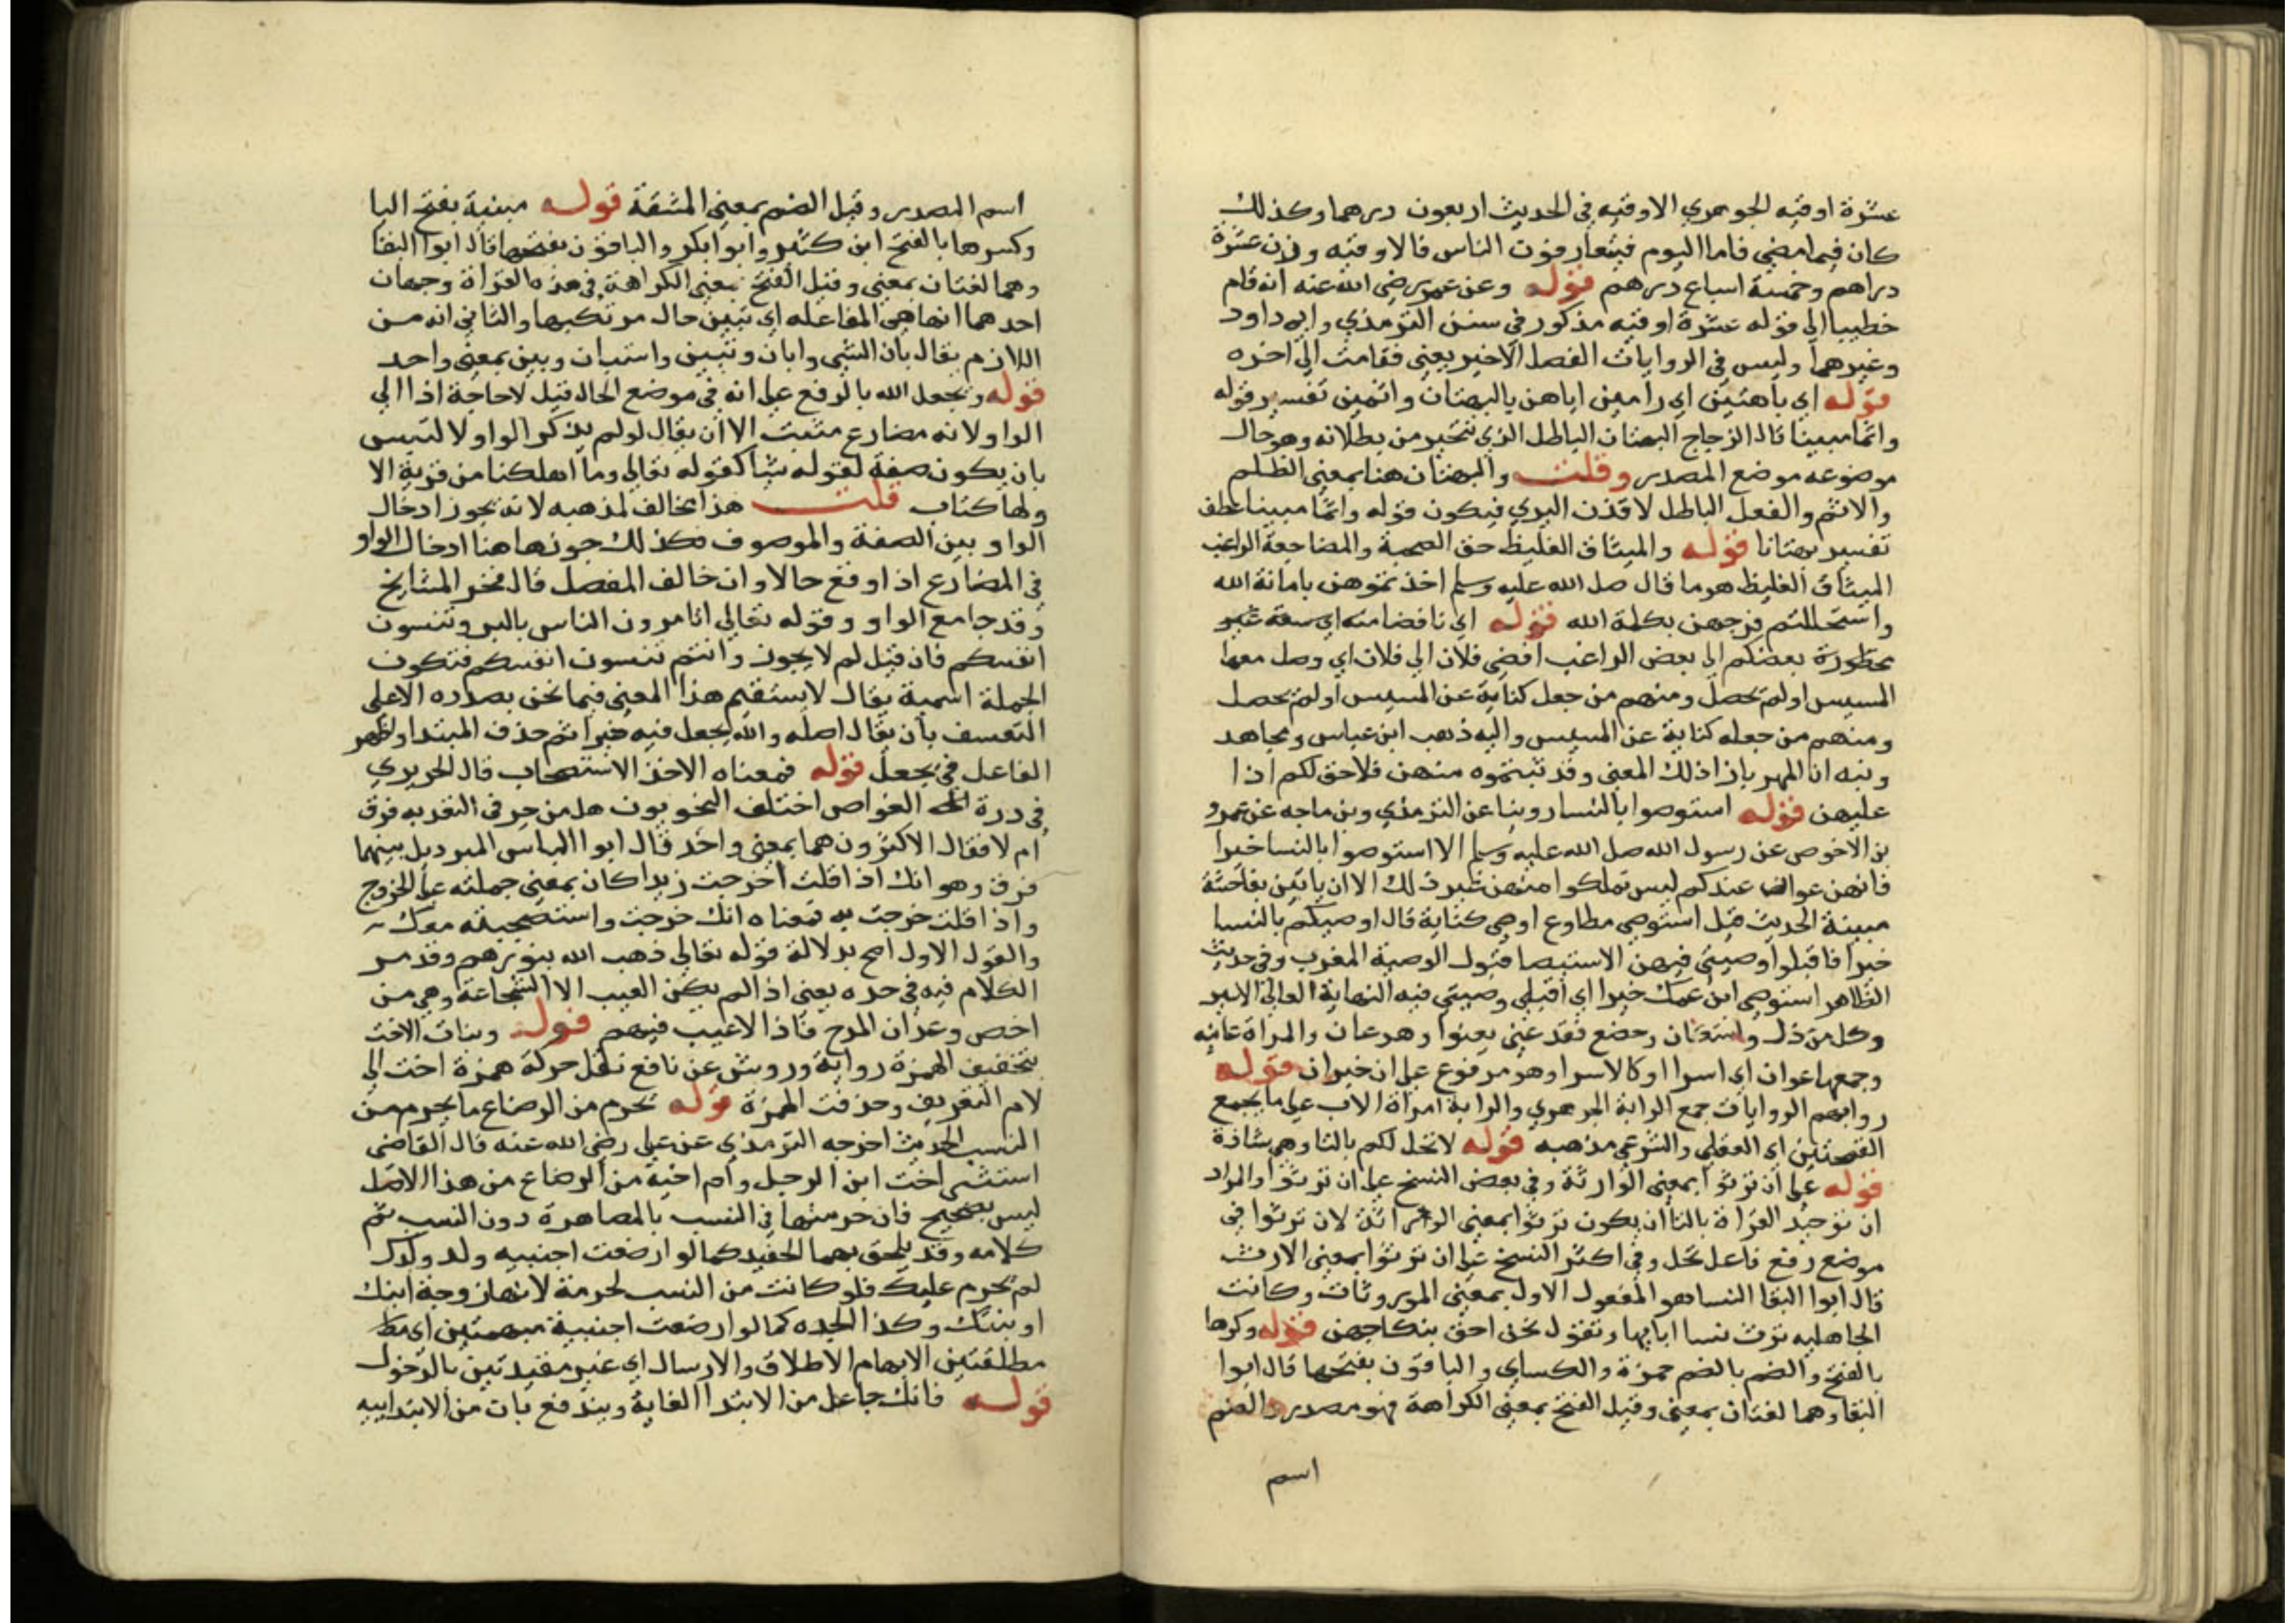 عشرة اوقيه الجوهري الاوقيه في الحديث اربعون درهما وكذلك
كان فيما مضى فاما اليوم فيتعارفوت الناس فالاوقيه وزن عشرة
دراهم وخمسة اسباع درهم قوله وعن عمر رضي الله عنه انه قام
خطيبا الى قوله عشرة اوقيه مذكور في سنن الترمذي وابي داود
وغيرهما وليس في الروايات الفصل الاخير يعني فقامت الى اخره
قوله اي باهتين اي رامين اياهن بالبهتان واثمين تفسير قوله
واثما مبينا قال الزجاج البهتان الباطل الذي يتحير من بطلانه وهو حال
موضوعه موضع المصدر وقلت والبهتان هنا بمعنى الظلم
والاثم والفعل الباطل لا قذف البري فيكون قوله واثما مبينا عطف
تفسير بهتانا قوله والميثاق الغليظ حق الصحبة والمضاجعة الراغب
الميثاق الغليظ هو ما قال صل الله عليه وسلم اخذتموهن بامانة الله
واستحللتم فروجهن بكلمة الله قوله اي نافضا منه اي سعة غير
محظورة بعضكم الى بعض الراغب افضى فلان الى فلان اي وصل معها
المسيس اولم تحصل ومنهم من جعل كناية عن المسيس اولم تحصل
ومنهم من جعله كناية عن المسيس واليه ذهب ابن عباس ومجاهد
ونبه ان المهر بازا ذلك المعنى وقد تبتموه منهن فلا حق لكم اذا
عليهن قوله استوصوا بالنسا روينا عن الترمذي وبن ماجه عن عمرو
بن الاخوص عن رسول الله صل الله عليه وسلم الا استوصوا بالنسا خيرا
فانهن عوان عندكم ليس تملكوا منهن غير ذلك الا ان ياتين بفاحشة
مبينة الحديث قيل استوصي مطاوع اوصي كناية قال اوصيكم بالنسا
خيرا فاقبلوا وصيتي فيهن الاستيصا قبول الوصية المغرب وفي حديث
الظاهر استوصي ابن عمك خيرا اي اقبلي وصيتي فيه النهاية العاني الاسير
وكل من ذل واستكان وخضع فقد عني يعنوا وهو عان والمراة عانيه
وجمعها عوان اي اسرا او كالاسرا وهو مرفوع على ان خبر ان قوله
روابهم الروايات جمع الرابة الجوهري والرابة امراة الاب على ما يجمع
القصتين اي العقلي والشرعي مذهبه قوله لا تحل لكم بالتا وهي شاذة
قوله على ان ترثوا بمعنى الوارثة وفي بعض النسخ على ان ترثوا والمراد
ان توحيد القراة بالتا ان يكون ترثوا بمعنى الوراثة لان ترثوا في
موضع رفع فاعل تحل وفي اكثر النسخ على ان ترثوا بمعنى الارث
قال ابوا البقا النسا هو المفعول الاول بمعنى الموروثات وكانت
الجاهليه ترث نسا ابايها وتقول نحن احق بنكاحهن قوله وكرها
بالفتح والضم بالضم حمزة والكساي والباقون بفتحها قال ابوا
البقا وهما لغتان بمعنى وقيل الفتح بمعنى الكراهة فهو مصدر والضم
اسم
اسم المصدر وقيل الضم بمعنى المشقة قوله مبنية بفتح اليا
وكسرها بالفتح ابن كثير وابوا بكر والباقون بفتحها قال ابوا البقا
وهما لغتان بمعنى وقيل الفتح بمعنى الكراهة في هذه القراة وجهان
احدهما انها هي الفاعله اي تبين حال مرتكبها والثاني انه من
اللازم يقال بان الشي وابان وتبين واستبان وبين بمعنى واحد
قوله ويجعل الله بالرفع على انه في موضع الحال قيل لا حاجة اذا الي
الواو لانه مضارع مثبت الا ان يقال لو لم يذكر الواو لالتبس
بان يكون صفة لقوله شيا كقوله تعالى وما اهلكنا من قرية الا
ولها كتاب قلت هذا يخالف لمذهبه لانه يجوز ادخال
الواو بين الصفة والموصوف فكذلك جوزها هنا ادخال الواو
في المضارع اذا وقع حالا وان خالف المفصل قال فخر المشايخ
وقد جامع الواو وقوله تعالى اتامرون الناس بالبر وتنسون
انفسكم فان قيل لم لا يجوز وانتم تنسون انفسكم فتكون
الجملة اسمية يقال لا يستقيم هذا المعنى فيما نحن بصدره الا على
التعسف بان يقال اصله والله يجعل فيه خيرا ثم حذف المبتدا واظهر
الفاعل في يجعل قوله فمعناه الاخذ الاستصحاب قال الحريري
في درة الغواص اختلف النحويون هل من حرفي التعديه فرق
ام لا فقال الاكثرون هما بمعنى واحد قال ابوا العباس المبرد بل بينهما
فرق وهو انك اذا قلت اخرجت زيدا كان بمعنى حملته على الخروج
واذا قلت خرجت به فمعناه انك خرجت واستصحبته معك
والقول الاول اصح بدلالة قوله تعالى ذهب الله بنورهم وقد مر
الكلام فيه في حده يعني اذا لم يكن العيب الا الشجاعة وهي من
اخص وعدان المدح فاذا لا عيب فيهم قوله وبنات الاخت
بتخفيف الهمزة رواية ورويش عن نافع نقل حركة همزة اخت الى
لام التعريف وحذفت الهمزة قوله تحرم من الرضاع ما يحرم من
النسب الحديث اخرجه الترمذي عن علي رضي الله عنه قال القاضي
استثنى اخت ابن الرجل وام اخيه من الرضاع من هذا الاصل
ليس بصحيح فان حرمتها في النسب بالمصاهرة دون النسب تم
كلامه وقد يلحق بهما الحفيد كما لو ارضعت اجنبيه ولد ولدك
لم تحرم عليك فلو كانت من النسب لحرمة لانها زوجة ابنك
او بنتك وكذا الجده كما لو ارضعت اجنبية مبهمتين اي
مطلقتين الابهام الاطلاق والارسال اي غير مقيدتين بالدخول
قوله فانك جاعل من الابتدا الغاية ويندفع بات من الابتداييه